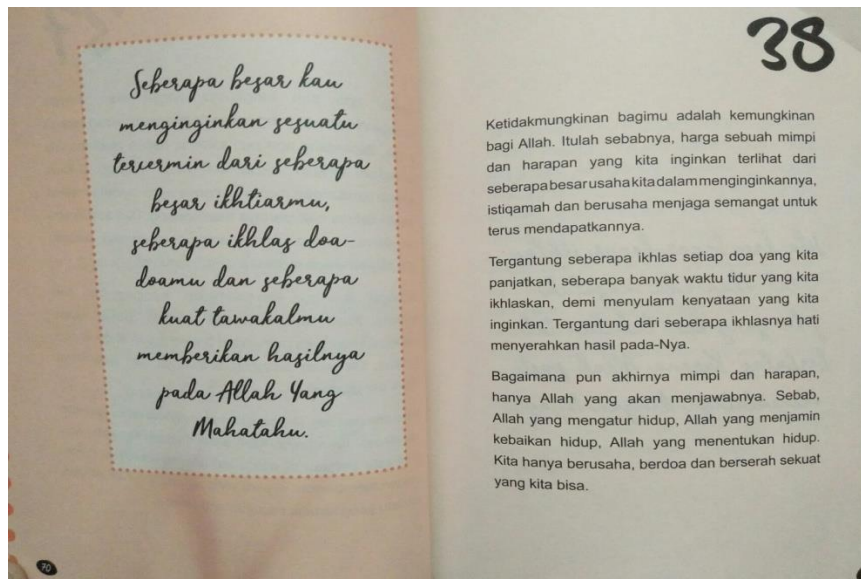 Seberapa besar kau
menginginkan sesuatu
tercermin dari seberapa
besar ikhtiarmu,
seberapa ikhlas doa-
doamu dan seberapa
kuat tawakalmu
memberikan hasilnya
pada Allah Yang
Mahatahu.
70
38
Ketidakmungkinan bagimu adalah kemungkinan
bagi Allah. Itulah sebabnya, harga sebuah mimpi
dan harapan yang kita inginkan terlihat dari
seberapa besar usaha kita dalam menginginkannya,
istiqamah dan berusaha menjaga semangat untuk
terus mendapatkannya.
Tergantung seberapa ikhlas setiap doa yang kita
panjatkan, seberapa banyak waktu tidur yang kita
ikhlaskan, demi menyulam kenyataan yang kita
inginkan. Tergantung dari seberapa ikhlasnya hati
menyerahkan hasil pada-Nya.
Bagaimana pun akhirnya mimpi dan harapan,
hanya Allah yang akan menjawabnya. Sebab,
Allah yang mengatur hidup, Allah yang menjamin
kebaikan hidup, Allah yang menentukan hidup.
Kita hanya berusaha, berdoa dan berserah sekuat
yang kita bisa.